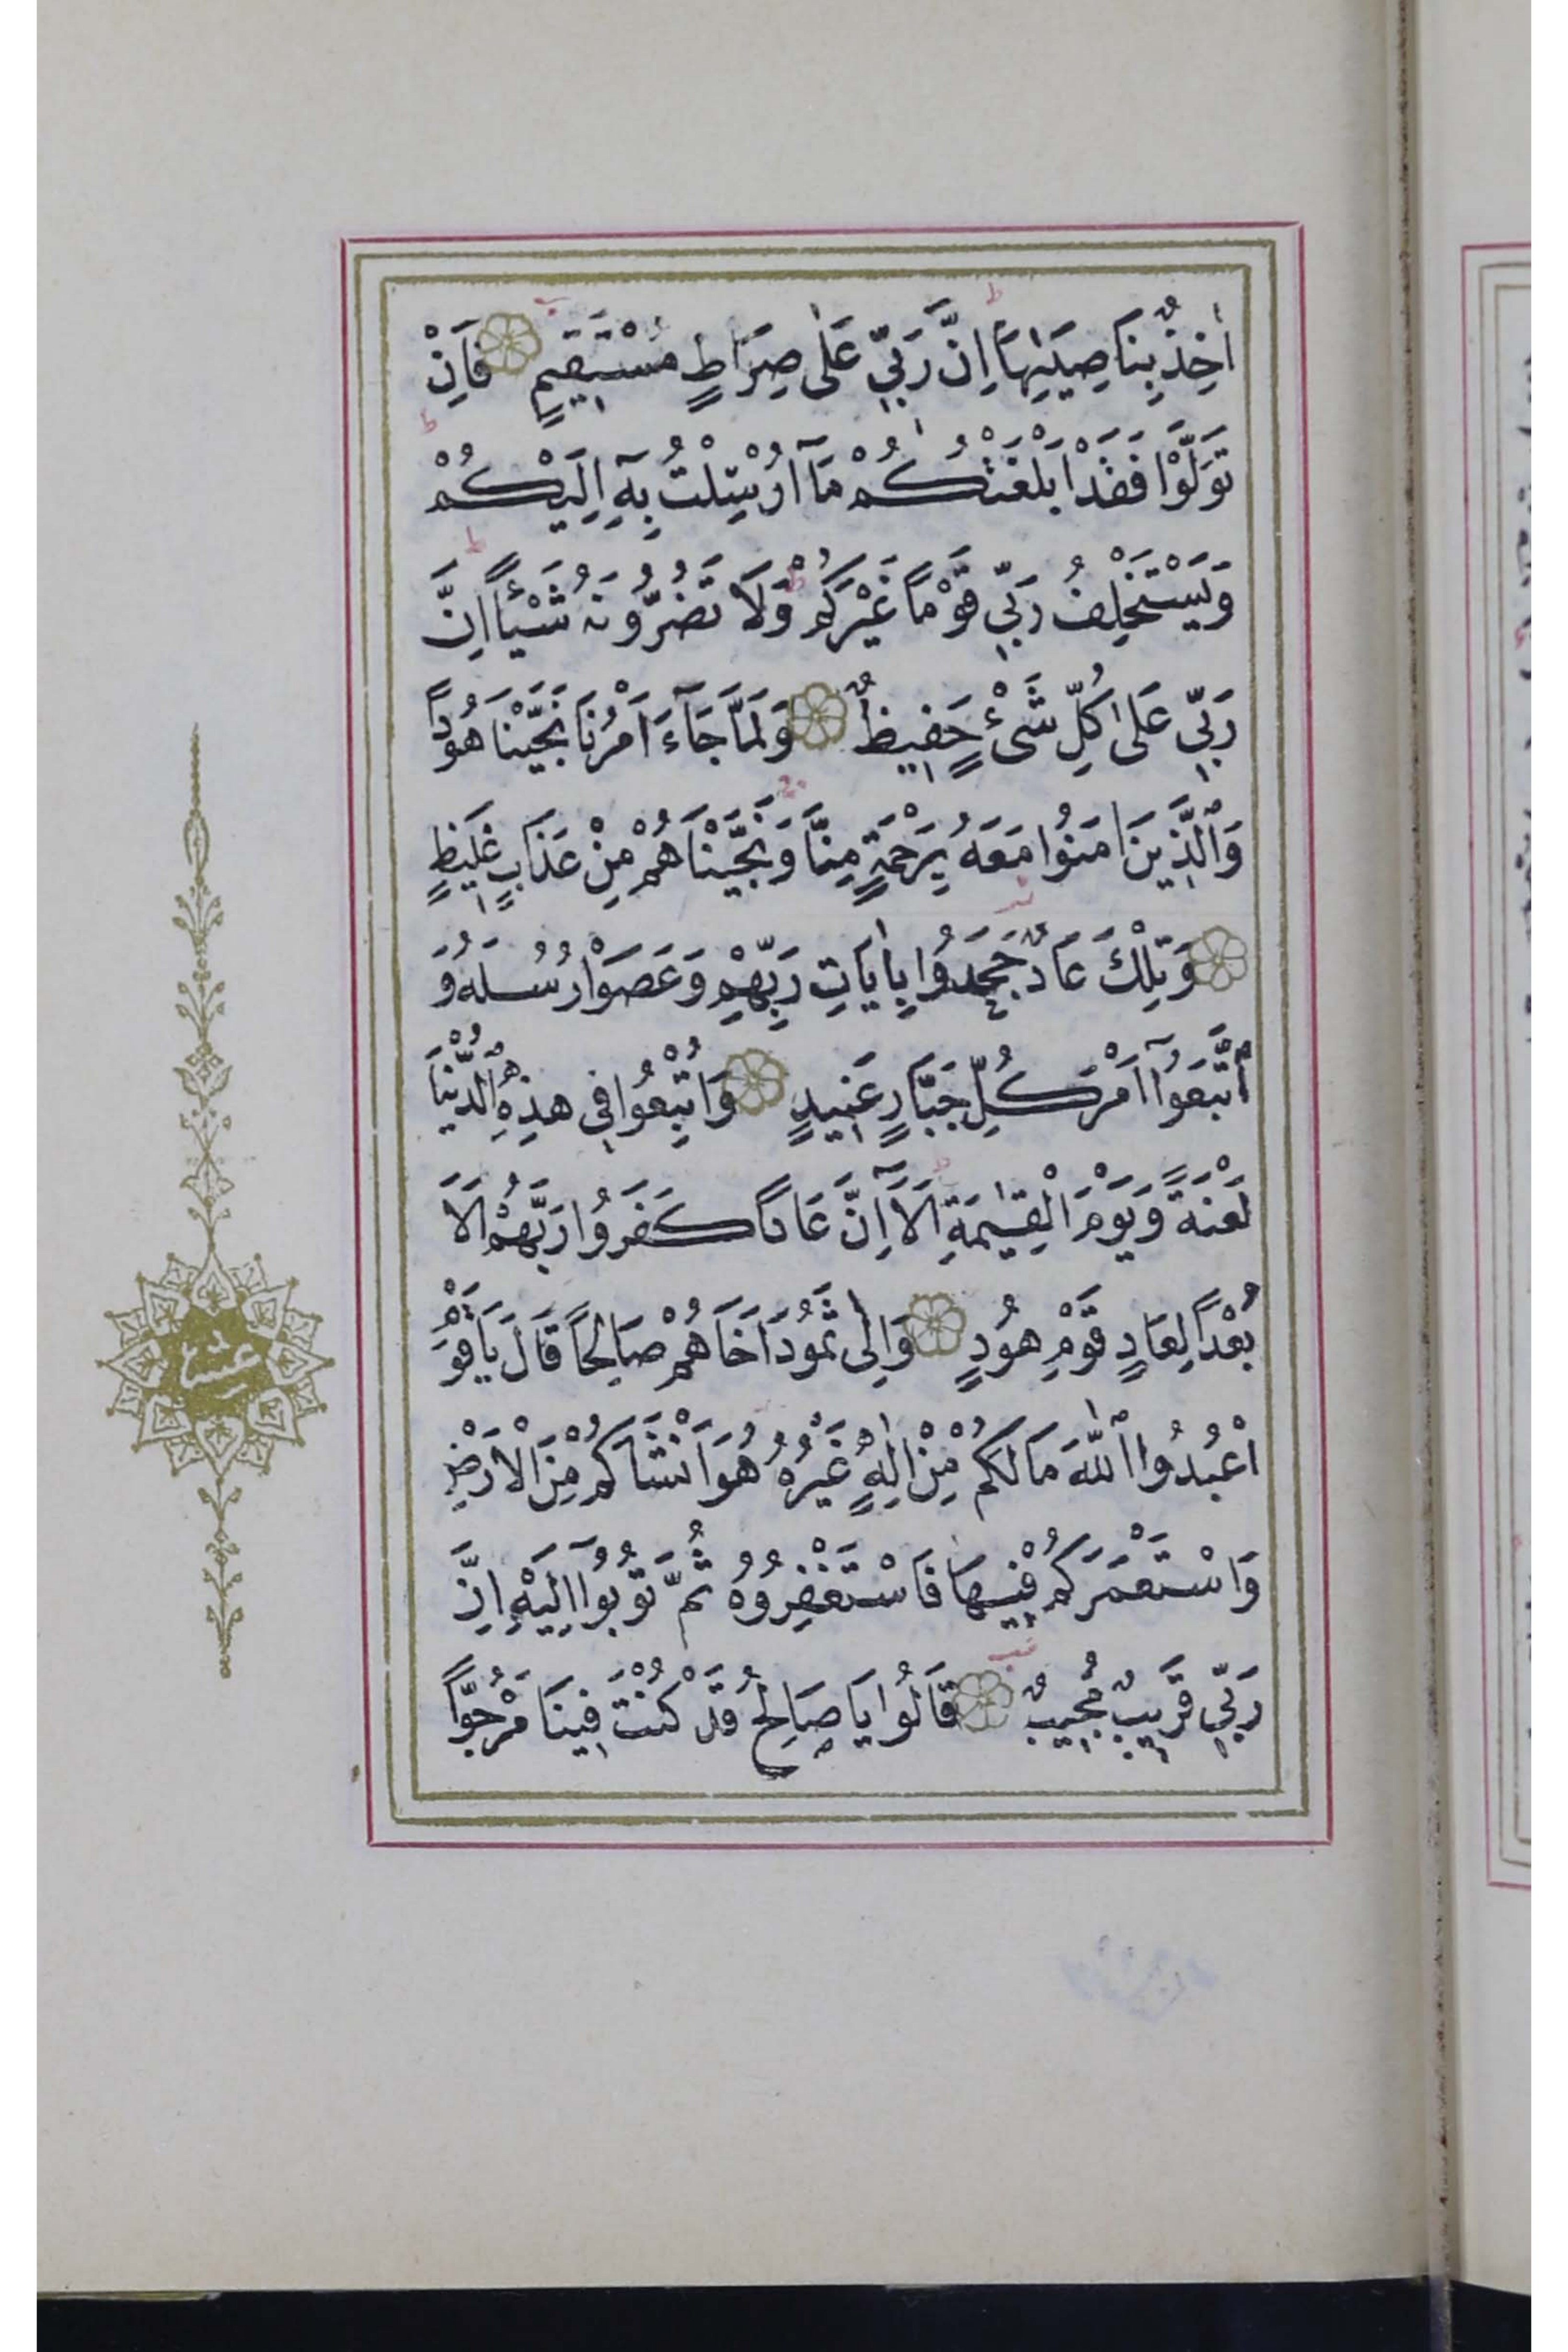 اٰخِذٌ بِنَاصِيَتِهَا اِنَّ رَبِّي عَلٰى صِرَاطٍ مُسْتَقِيمٍ فَاِنْ
تَوَلَّوْا فَقَدْ اَبْلَغْتُكُمْ مَٓا اُرْسِلْتُ بِهِٓ اِلَيْكُمْ
وَيَسْتَخْلِفُ رَبِّي قَوْمًا غَيْرَكُمْ وَلَا تَضُرُّونَهُ شَيْئًا اِنَّ
رَبِّي عَلٰى كُلِّ شَيْءٍ حَفِيظٌ وَلَمَّا جَٓاءَ اَمْرُنَا نَجَّيْنَا هُودًا
وَالَّذِينَ اٰمَنُوا مَعَهُ بِرَحْمَةٍ مِنَّا وَنَجَّيْنَاهُمْ مِنْ عَذَابٍ غَلِيظٍ
وَتِلْكَ عَادٌ جَحَدُوا بِاٰيَاتِ رَبِّهِمْ وَعَصَوْا رُسُلَهُ وَ
اتَّبَعُٓوا اَمْرَ كُلِّ جَبَّارٍ عَنِيدٍ وَاُتْبِعُوا فِي هٰذِهِ الدُّنْيَا
لَعْنَةً وَيَوْمَ الْقِيٰمَةِ اَلَٓا اِنَّ عَادًا كَفَرُوا رَبَّهُمْ اَلَا
بُعْدًا لِعَادٍ قَوْمِ هُودٍ وَاِلٰى ثَمُودَ اَخَاهُمْ صَالِحًا قَالَ يَا قَوْمِ
اعْبُدُوا اللّٰهَ مَا لَكُمْ مِنْ اِلٰهٍ غَيْرُهُ هُوَ اَنْشَاَكُمْ مِنَ الْاَرْضِ
وَاسْتَعْمَرَكُمْ فِيهَا فَاسْتَغْفِرُوهُ ثُمَّ تُوبُٓوا اِلَيْهِ اِنَّ
رَبِّي قَرِيبٌ مُجِيبٌ قَالُوا يَا صَالِحُ قَدْ كُنْتَ فِينَا مَرْجُوًّا